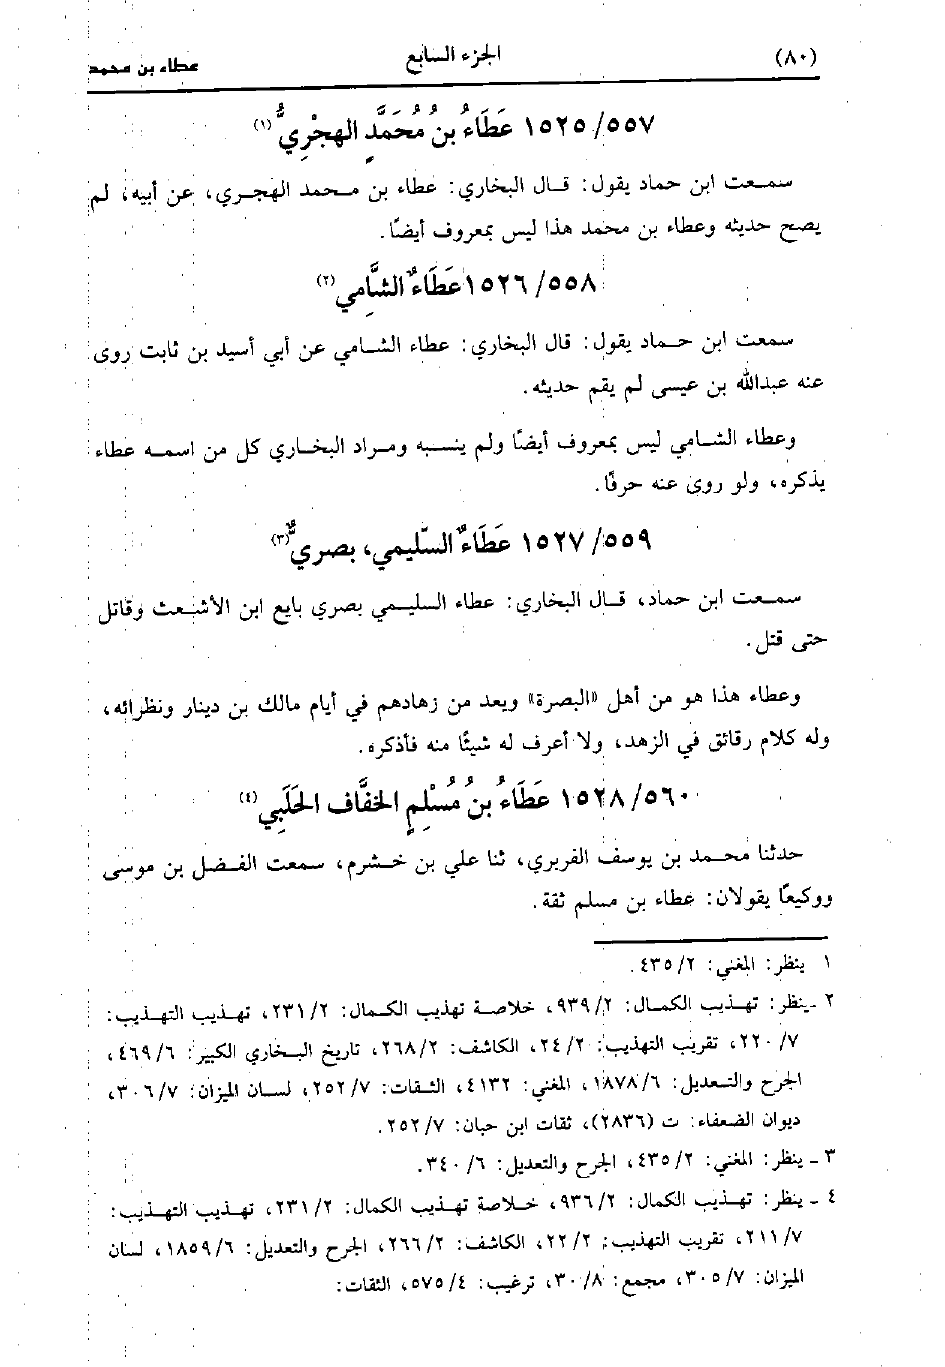 (٨٠) الجزء السابع عطاء بن محمد
١٥٢٥/٥٥٧ عَطَاءُ بنُ مُحَمَّدٍ الهِجْرِيُّ (١)
سمعت ابن حماد يقول: قال البخاري: عطاء بن محمد الهجري، عن أبيه، لم
يصح حديثه وعطاء بن محمد هذا ليس بمعروف أيضًا.
١٥٢٦/٥٥٨ عَطَاءٌ الشَّامِي (٢)
سمعت ابن حماد يقول: قال البخاري: عطاء الشامي عن أبي أسيد بن ثابت روى
عنه عبدالله بن عيسى لم يقم حديثه.
وعطاء الشامي ليس بمعروف أيضًا ولم ينسبه ومراد البخاري كل من اسمه عطاء
يذكره، ولو روى عنه حرفًا.
١٥٢٧/٥٥٩ عَطَاءٌ السّليمي، بصريٌّ (٣)
سمعت ابن حماد، قال البخاري: عطاء السليمي بصري بايع ابن الأشعث وقاتل
حتى قتل.
وعطاء هذا هو من أهل «البصرة» ويعد من زهادهم في أيام مالك بن دينار ونظرائه،
وله كلام رقائق في الزهد، ولا أعرف له شيئًا منه فأذكره.
١٥٢٨/٥٦٠ عَطَاءُ بنُ مُسْلِمٍ الخفَّاف الحَلَبِي (٤)
حدثنا محمد بن يوسف الفربري، ثنا علي بن خشرم، سمعت الفضل بن موسى
ووكيعًا يقولان: عطاء بن مسلم ثقة.
١ ينظر: المغني: ٤٣٥/٢.
٢ ـ ينظر: تهذيب الكمال: ٩٣٩/٢، خلاصة تهذيب الكمال: ٢٣١/٢، تهذيب التهذيب:
٢٢٠/٧، تقريب التهذيب: ٢٤/٢، الكاشف: ٢٦٨/٢، تاريخ البخاري الكبير: ٤٦٩/٦،
الجرح والتعديل: ١٨٧٨/٦، المغني: ٤١٣٢، الثقات: ٢٥٢/٧، لسان الميزان: ٣٠٦/٧،
ديوان الضعفاء: ت (٢٨٣٦)، ثقات ابن حبان: ٢٥٢/٧.
٣ ـ ينظر: المغني: ٤٣٥/٢، الجرح والتعديل: ٣٤٠/٦.
٤ ـ ينظر: تهذيب الكمال: ٩٣٦/٢، خلاصة تهذيب الكمال: ٢٣١/٢، تهذيب التهذيب:
٢١١/٧، تقريب التهذيب: ٢٢/٢، الكاشف: ٢٦٦/٢، الجرح والتعديل: ١٨٥٩/٦، لسان
الميزان: ٣٠٥/٧، مجمع: ٣٠/٨، ترغيب: ٥٧٥/٤، الثقات: